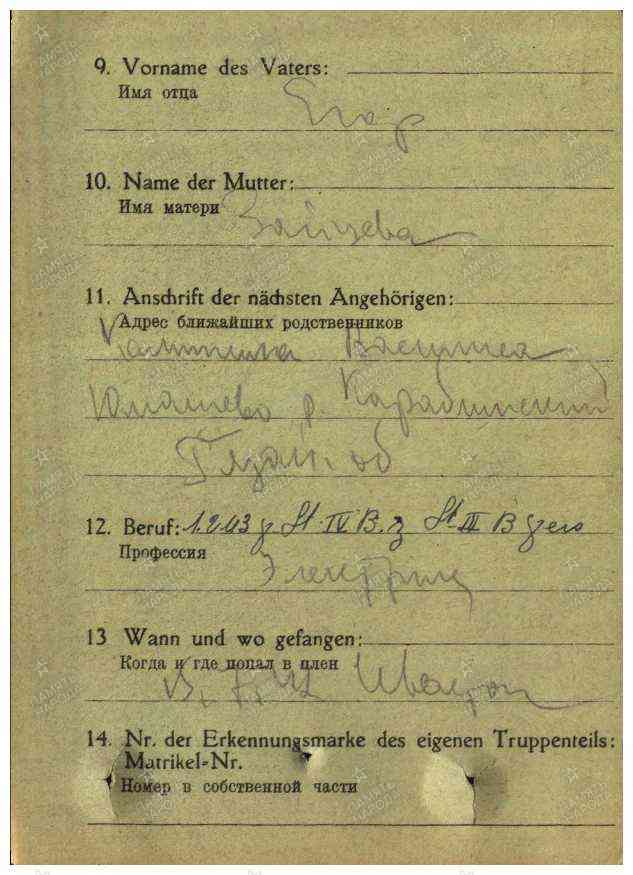 9. Vorname des Vaters:
Имя отца
Егор
10. Name der Mutter:
Имя матери
Зайцева
11. Anschrift der nächsten Angehörigen:
Адрес ближайших родственников
Калинина
Юмашево р. Кораблинский
об
12. Beruf: 1.2.43 St. IV B. z St II B
Профессия
Электриц
13 Wann und wo gefangen:
Когда и где попал в плен
14. Nr. der Erkennungsmarke des eigenen Truppenteils:
Matrikel-Nr.
Номер в собственной части